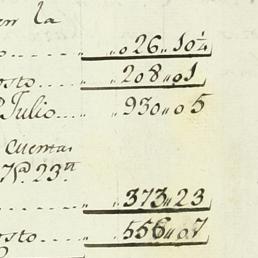 en la
o.... „ „ 026 „ 10¼
osto.... „ 208 „ 01
Julio... „ 930 „ 05
cuentas
Nª. 23.
„ 373 „ 23
osto.... „ 556 „ 07